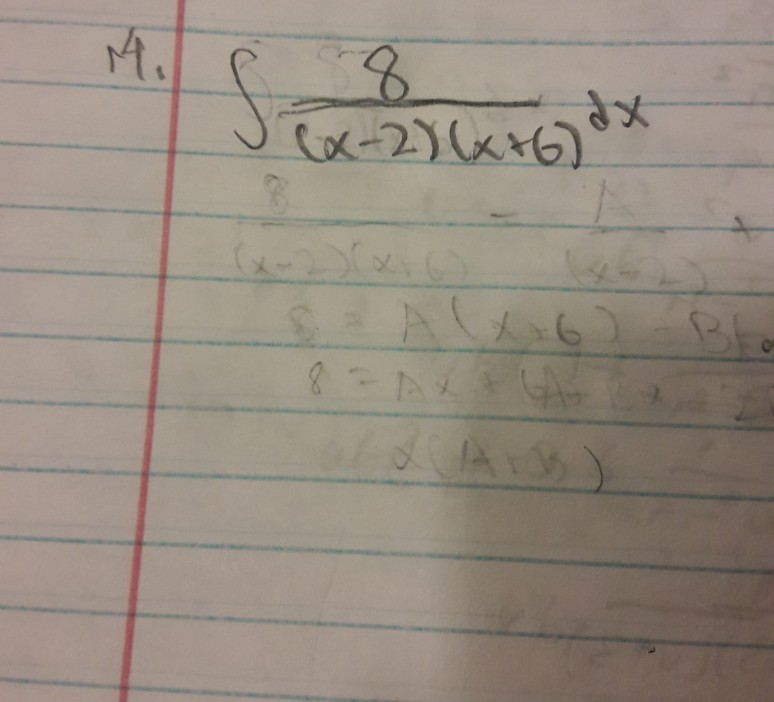 14. ∫ 8/((x-2)(x+6)) dx
8/((x-2)(x+6)) = A/(x-2) +
8 = A(x+6) - B(
8 = Ax + 6A +
x(A+B)